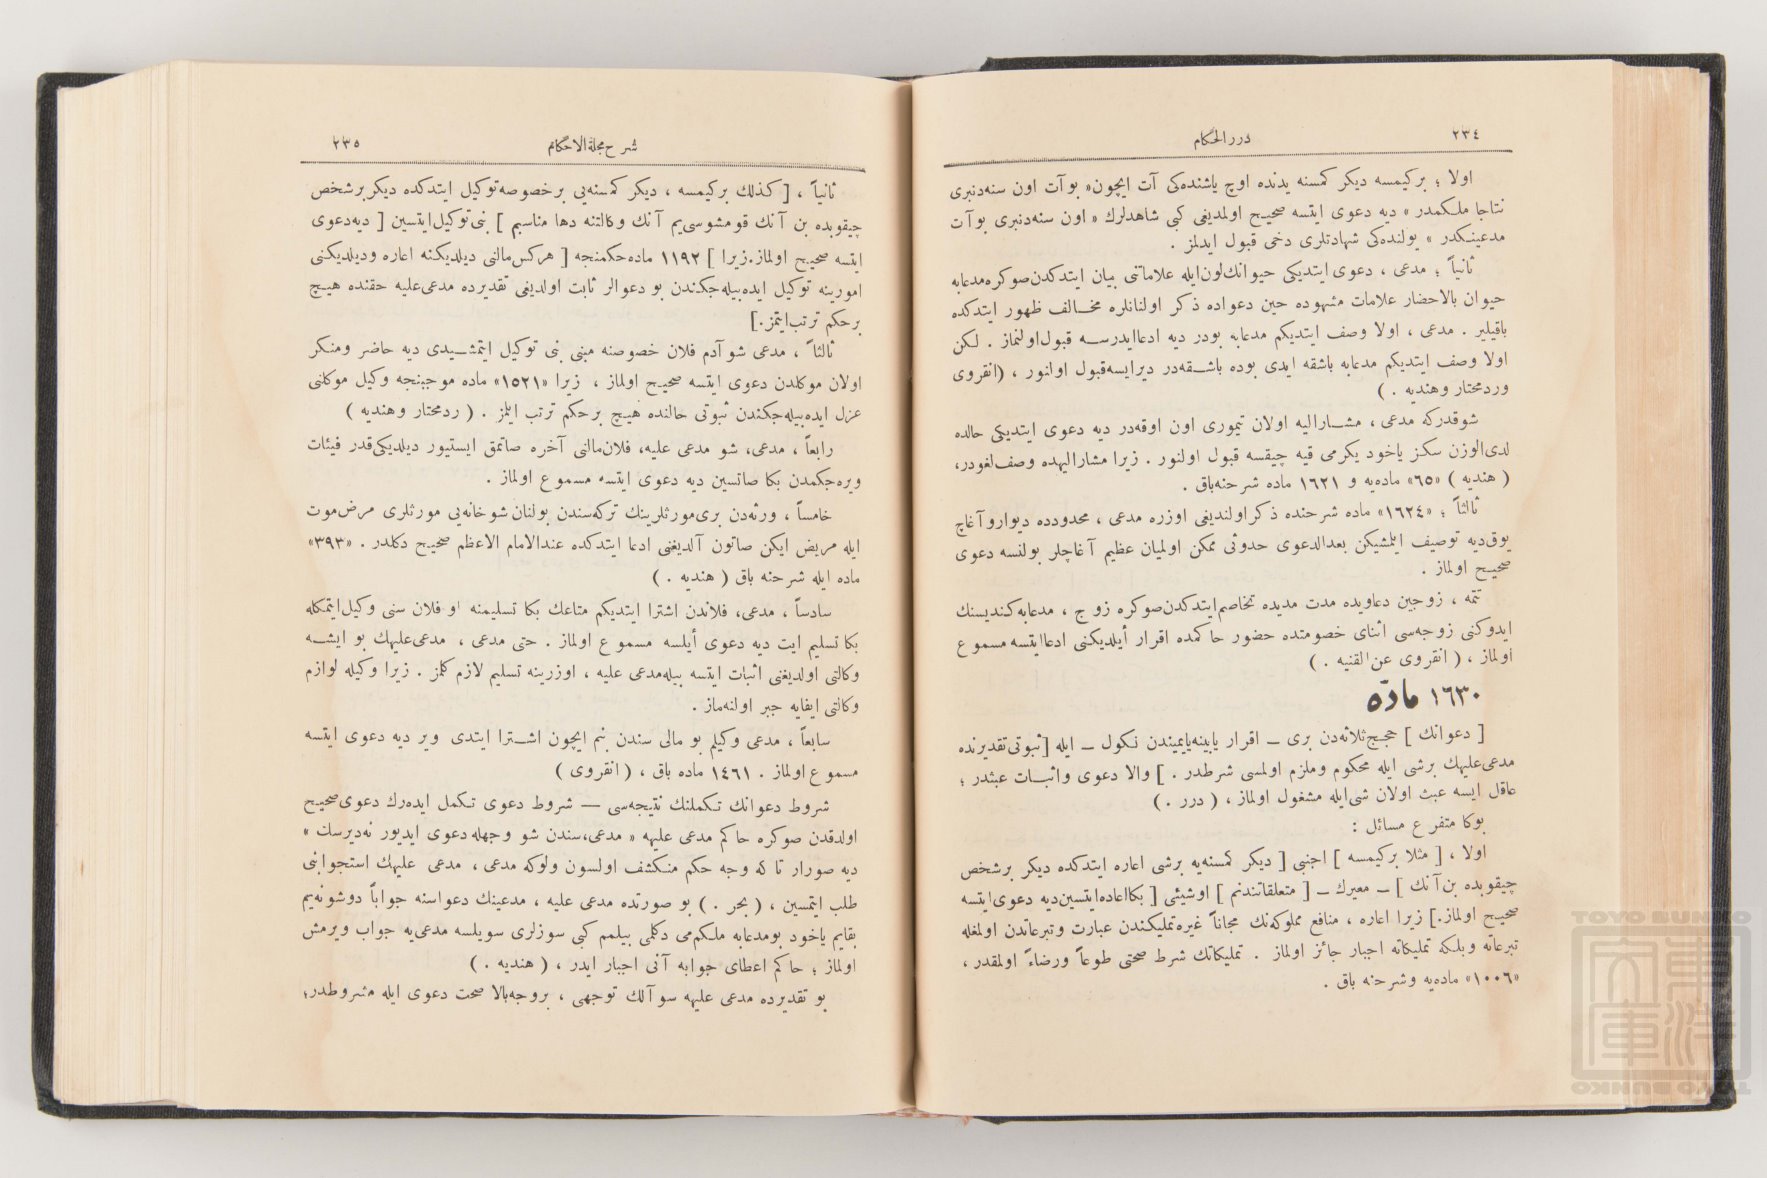 ٢٣٤
درر الحكام
اولا ؛ بركيمسه ديكر كمسنه يدنده اوچ ياشنده‌كى آت ايچون» بوآت اون سنه‌دنبرى
نتاجا ملكمدر » ديه دعوى ايتسه صحيح اولمديغى كبى شاهدلرك « اون سنه‌دنبرى بوآت
مدعينكدر » يولنده‌كى شهادتلرى دخى قبول ايدلمز .
ثانياً ؛ مدعى ، دعوى ايتديكى حيوانك‌لون‌ايله علاماتنى بيان ايتدكدن‌صوكره‌مدعابه
حيوان بالاحضار علامات مشهوده حين دعواده ذكر اولنانلره مخالف ظهور ايتدكده
باقيلير . مدعى ، اولا وصف ايتديكم مدعابه بودر ديه ادعاايدرسه قبول‌اولنماز . لكن
اولا وصف ايتديكم مدعابه باشقه ايدى بوده باشقه‌در ديرايسه‌قبول اولنور ، (انقروى
وردمختار وهنديه . )
شوقدركه مدعى ، مشاراليه اولان تيمورى اون اوقه‌در ديه دعوى ايتديكى حالده
لدى‌الوزن سكز ياخود يكرمى قيه چيقسه قبول اولنور . زيرا مشاراليهده وصف‌لغودر،
( هنديه ) «٦٥» ماده‌يه و ١٦٢١ ماده شرحنه‌باق .
ثالثاً ؛ «١٦٢٤» ماده شرحنده ذكراولنديغى اوزره مدعى ، محدودده ديواروآغاچ
يوق‌ديه توصيف ايلمشيكن بعدالدعوى حدوثى ممكن اولميان عظيم آغاچلر بولنسه دعوى
صحيح اولماز .
تتمه ، زوجين دعاويده مدت مديده تخاصم‌ايتدكدن‌صوكره زوج ، مدعابه‌كنديسنك
ايدوكنى زوجه‌سى اثناى خصومتده حضور حاكمده اقرار أيلديكنى ادعاايتسه مسموع
اولماز ، ( انقروى عن‌القنيه . )
١٦٣٠ مادّه
[ دعوانك ] حجج‌ثلاثه‌دن برى ــ اقرار يابينه‌يايميندن نكول ــ ايله [ثبوتى‌تقديرنده
مدعى‌عليهك برشى ايله محكوم وملزم اولمسى شرطدر . ] والا دعوى واثبات عبثدر ؛
عاقل ايسه عبث اولان شى‌ايله مشغول اولماز ، ( درر . )
بوكا متفرع مسائل :
اولا ، [ مثلا بركيمسه ] اجنبى [ ديكر كمسنه‌يه برشى اعاره ايتدكده ديكر برشخص
چيقوبده بن‌آنك ] ــ معيرك ــ [ متعلقاتندنم ] اوشيئى [ بكااعاده‌ايتسين‌ديه دعوى‌ايتسه
صحيح اولماز.] زيرا اعاره ، منافع مملوكه‌نك مجاناً غيره‌تمليكندن عبارت وتبرعاتدن اولمغله
تبرعاته وبلكه تمليكاته اجبار جائز اولماز . تمليكاتك شرط صحتى طوعاً ورضاءً اولمقدر ،
«١٠٠٦» ماده‌يه وشرحنه باق .
شرح مجلة‌الاحكام
٢٣٥
ثانياً ، [ كذلك بركيمسه ، ديكر كمسنه‌يى برخصوصه‌توكيل ايتدكده ديكربرشخص
چيقوبده بن آنك قومشوسى‌يم آنك وكالتنه دها مناسبم ] بنى‌توكيل‌ايتسين [ ديه‌دعوى
ايتسه صحيح اولماز.زيرا ] ١١٩٢ ماده‌حكمنجه [ هركس‌مالنى ديلديكنه اعاره وديلديكنى
امورينه توكيل ايده‌بيله‌جكندن بو دعوالر ثابت اولديغى تقديرده مدعى‌عليه حقنده هيچ
برحكم ترتب‌ايتمز.]
ثالثاً ، مدعى شو آدم فلان خصوصنه مبنى بنى توكيل ايتمشيدى ديه حاضر ومنكر
اولان موكلدن دعوى ايتسه صحيح اولماز ، زيرا «١٥٢١» ماده موجبنجه وكيل موكلنى
عزل ايده‌بيله‌جكندن ثبوتى حالنده هيچ برحكم ترتب ايلمز . ( ردمختار وهنديه )
رابعاً ، مدعى، شو مدعى عليه، فلان‌مالنى آخره صاتمق ايستيور ديلديكى‌قدر فيئات
ويره‌جكمدن بكا صاتسين ديه دعوى ايتسه مسموع اولماز .
خامساً ، ورثه‌دن برى‌مورثلرينك تركه‌سندن بولنان شوخانه‌يى مورثلرى مرض‌موت
ايله مريض ايكن صاتون آلديغنى ادعا ايتدكده عندالامام الاعظم صحيح دكلدر . «٣٩٣»
ماده ايله شرحنه باق ( هنديه . )
سادساً ، مدعى، فلاندن اشترا ايتديكم متاعك بكا تسليمنه او فلان سنى وكيل‌ايتمكله
بكا تسليم ايت ديه دعوى أيلسه مسموع اولماز . حتى مدعى ، مدعى‌عليهك بو ايشه
وكالتى اولديغنى اثبات ايتسه بيله‌مدعى عليه ، اوزرينه تسليم لازم كلمز . زيرا وكيله لوازم
وكالتى ايفايه جبر اولنه‌ماز .
سابعاً ، مدعى وكيلم بو مالى سندن بنم ايچون اشترا ايتدى وير ديه دعوى ايتسه
مسموع اولماز . ١٤٦١ ماده باق ، ( انقروى )
شروط دعوانك تكملنك نتيجه‌سى — شروط دعوى تكمل ايده‌رك دعوى‌صحيح
اولدقدن صوكره حاكم مدعى عليهه « مدعى،سندن شو وجهله دعوى ايديور نه‌ديرسك »
ديه صورار تا كه وجه حكم منكشف اولسون ولوكه مدعى ، مدعى عليهك استجوابنى
طلب ايتمسين ، ( بحر . ) بو صورتده مدعى عليه ، مدعينك دعواسنه جواباً دوشونه‌يم
بقايم ياخود بومدعابه ملكم‌مى دكلمى بيلمم كبى سوزلرى سويلسه مدعى‌يه جواب ويرمش
اولماز ؛ حاكم اعطاى جوابه آنى اجبار ايدر ، ( هنديه . )
بو تقديرده مدعى عليهه سوآلك توجهى ، بروجه‌بالا صحت دعوى ايله مشروطدر؛
TOYO BUNKO
東洋文庫
TOYO BUNKO